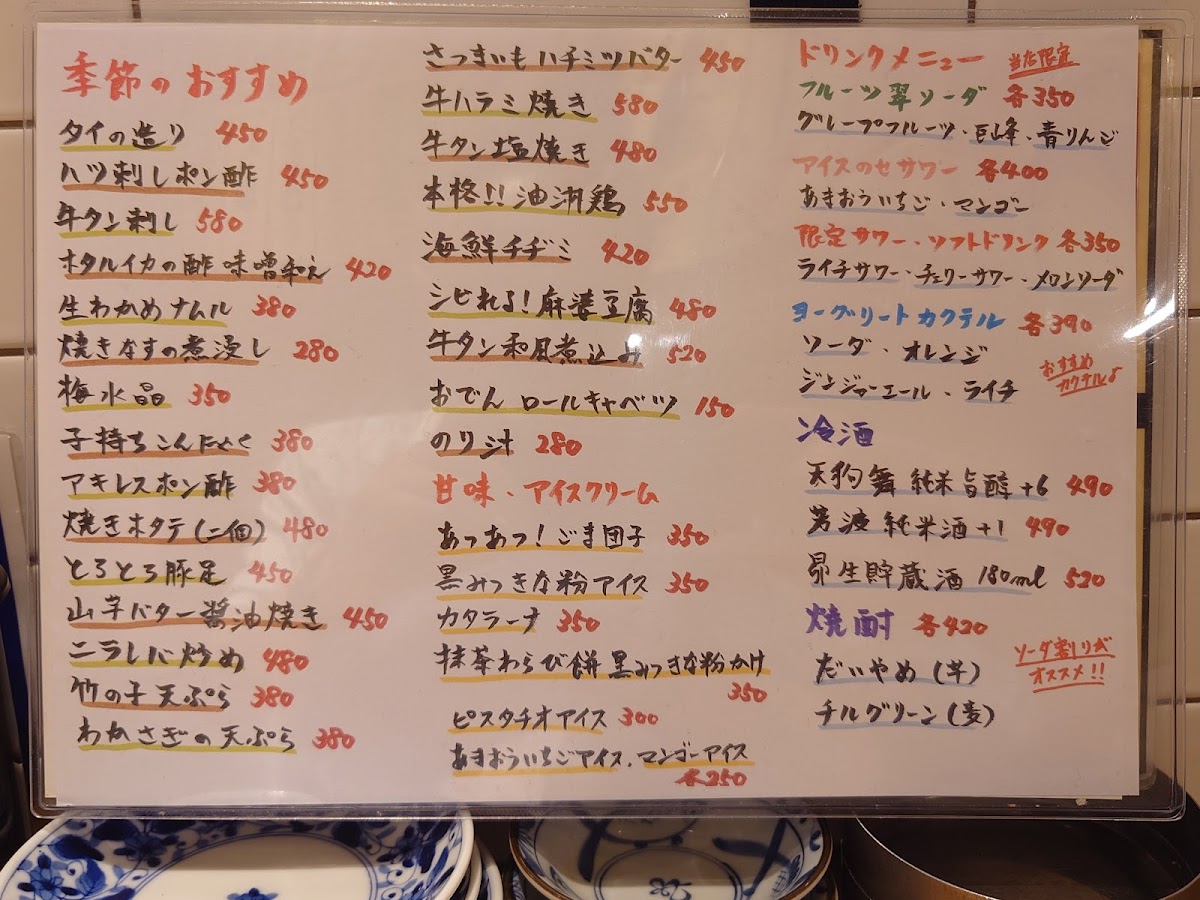 季節のおすすめ
タイの造り 450
ハツ刺しポン酢 450
牛タン刺し 580
ホタルイカの酢味噌和え 420
生わかめナムル 380
焼きなすの煮浸し 280
梅水晶 350
子持ちこんにゃく 380
アキレスポン酢 380
焼きホタテ(二個) 480
とろとろ豚足 450
山芋バター醤油焼き 450
ニラレバ炒め 480
竹の子天ぷら 380
わかさぎの天ぷら 380
さつまいもハチミツバター 450
牛ハラミ焼き 580
牛タン塩焼き 480
本格!!油淋鶏 550
海鮮チヂミ 420
シビれる!麻婆豆腐 480
牛タン和風煮込み 520
おでん ロールキャベツ 150
のり汁 280
甘味・アイスクリーム
あつあつ!ごま団子 350
黒みつきな粉アイス 350
カタラーナ 350
抹茶わらび餅黒みつきな粉かけ
350
ピスタチオアイス 300
あまおういちごアイス、マンゴーアイス
各250
ドリンクメニュー 当店限定
フルーツ翠ソーダ 各350
グレープフルーツ・巨峰・青りんご
アイスのせサワー 各400
あまおういちご・マンゴー
限定サワー・ソフトドリンク 各350
ライチサワー・チェリーサワー・メロンソーダ
ヨーグリートカクテル 各390
ソーダ・オレンジ
ジンジャーエール・ライチ
おすすめ
カクテル♪
冷酒
天狗舞 純米旨醇+6 490
芳波 純米酒+1 490
昴生貯蔵酒 180ml 520
焼酎 各420
だいやめ(芋)
チルグリーン(麦)
ソーダ割りが
オススメ!!